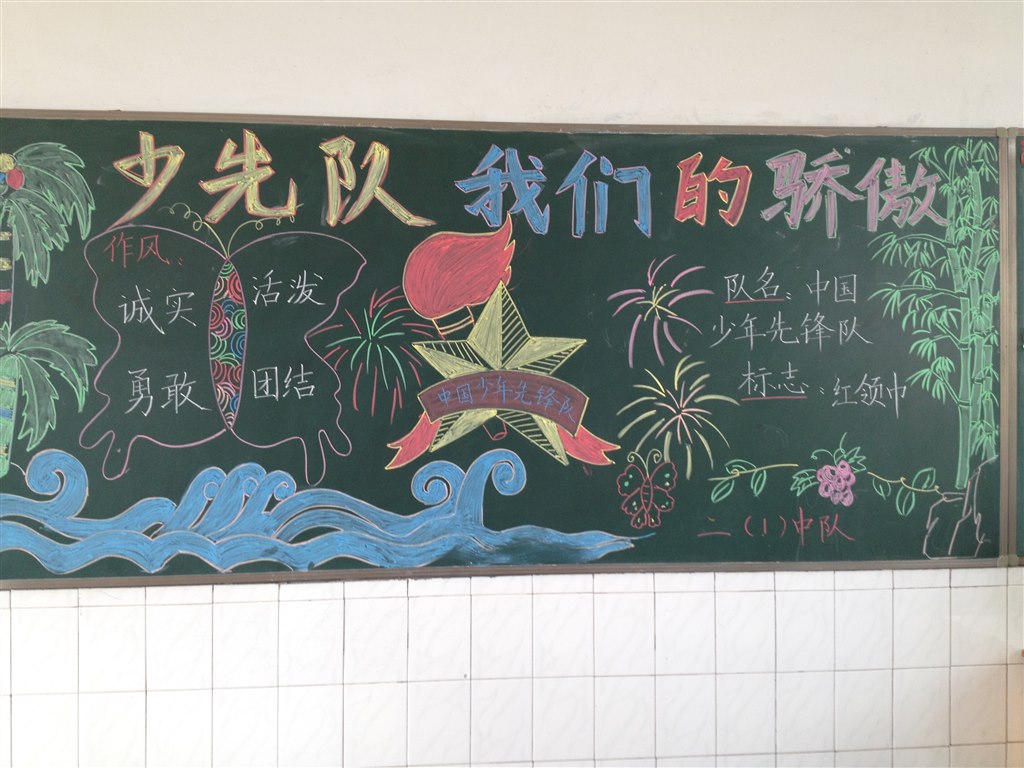 少先队 我们的骄傲
作风:
诚实 活泼
勇敢 团结
中国少年先锋队
队名:中国
少年先锋队
标志:红领巾
二(1)中队